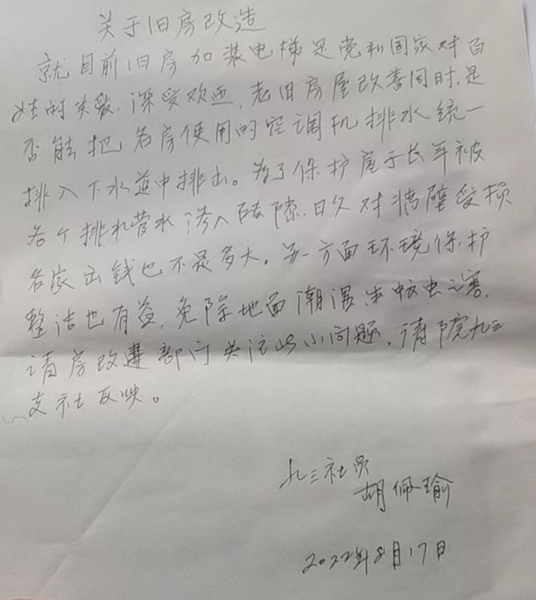 关于旧房改造
就目前旧房加装电梯是党和国家对百
姓的关爱.深受欢迎,老旧房屋改善同时.是
否能把各房使用的空调机排水统一
排入下水道中排出。为了保护屋子长年被
各个排水管水渗入隙.日久对墙壁受损.
各家出钱也不是多大。另一方面环境保护
整洁也有益,免除地面潮湿生蚊虫之害.
请房改建部门关注此小问题,请院九三
支社反映。
九三社员
胡佩瑜
2022年8月17日